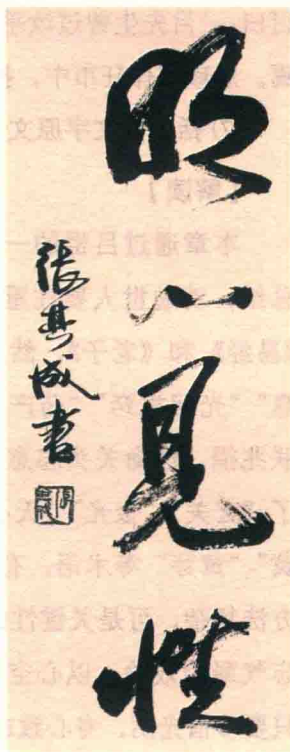 明心見性
張其成書